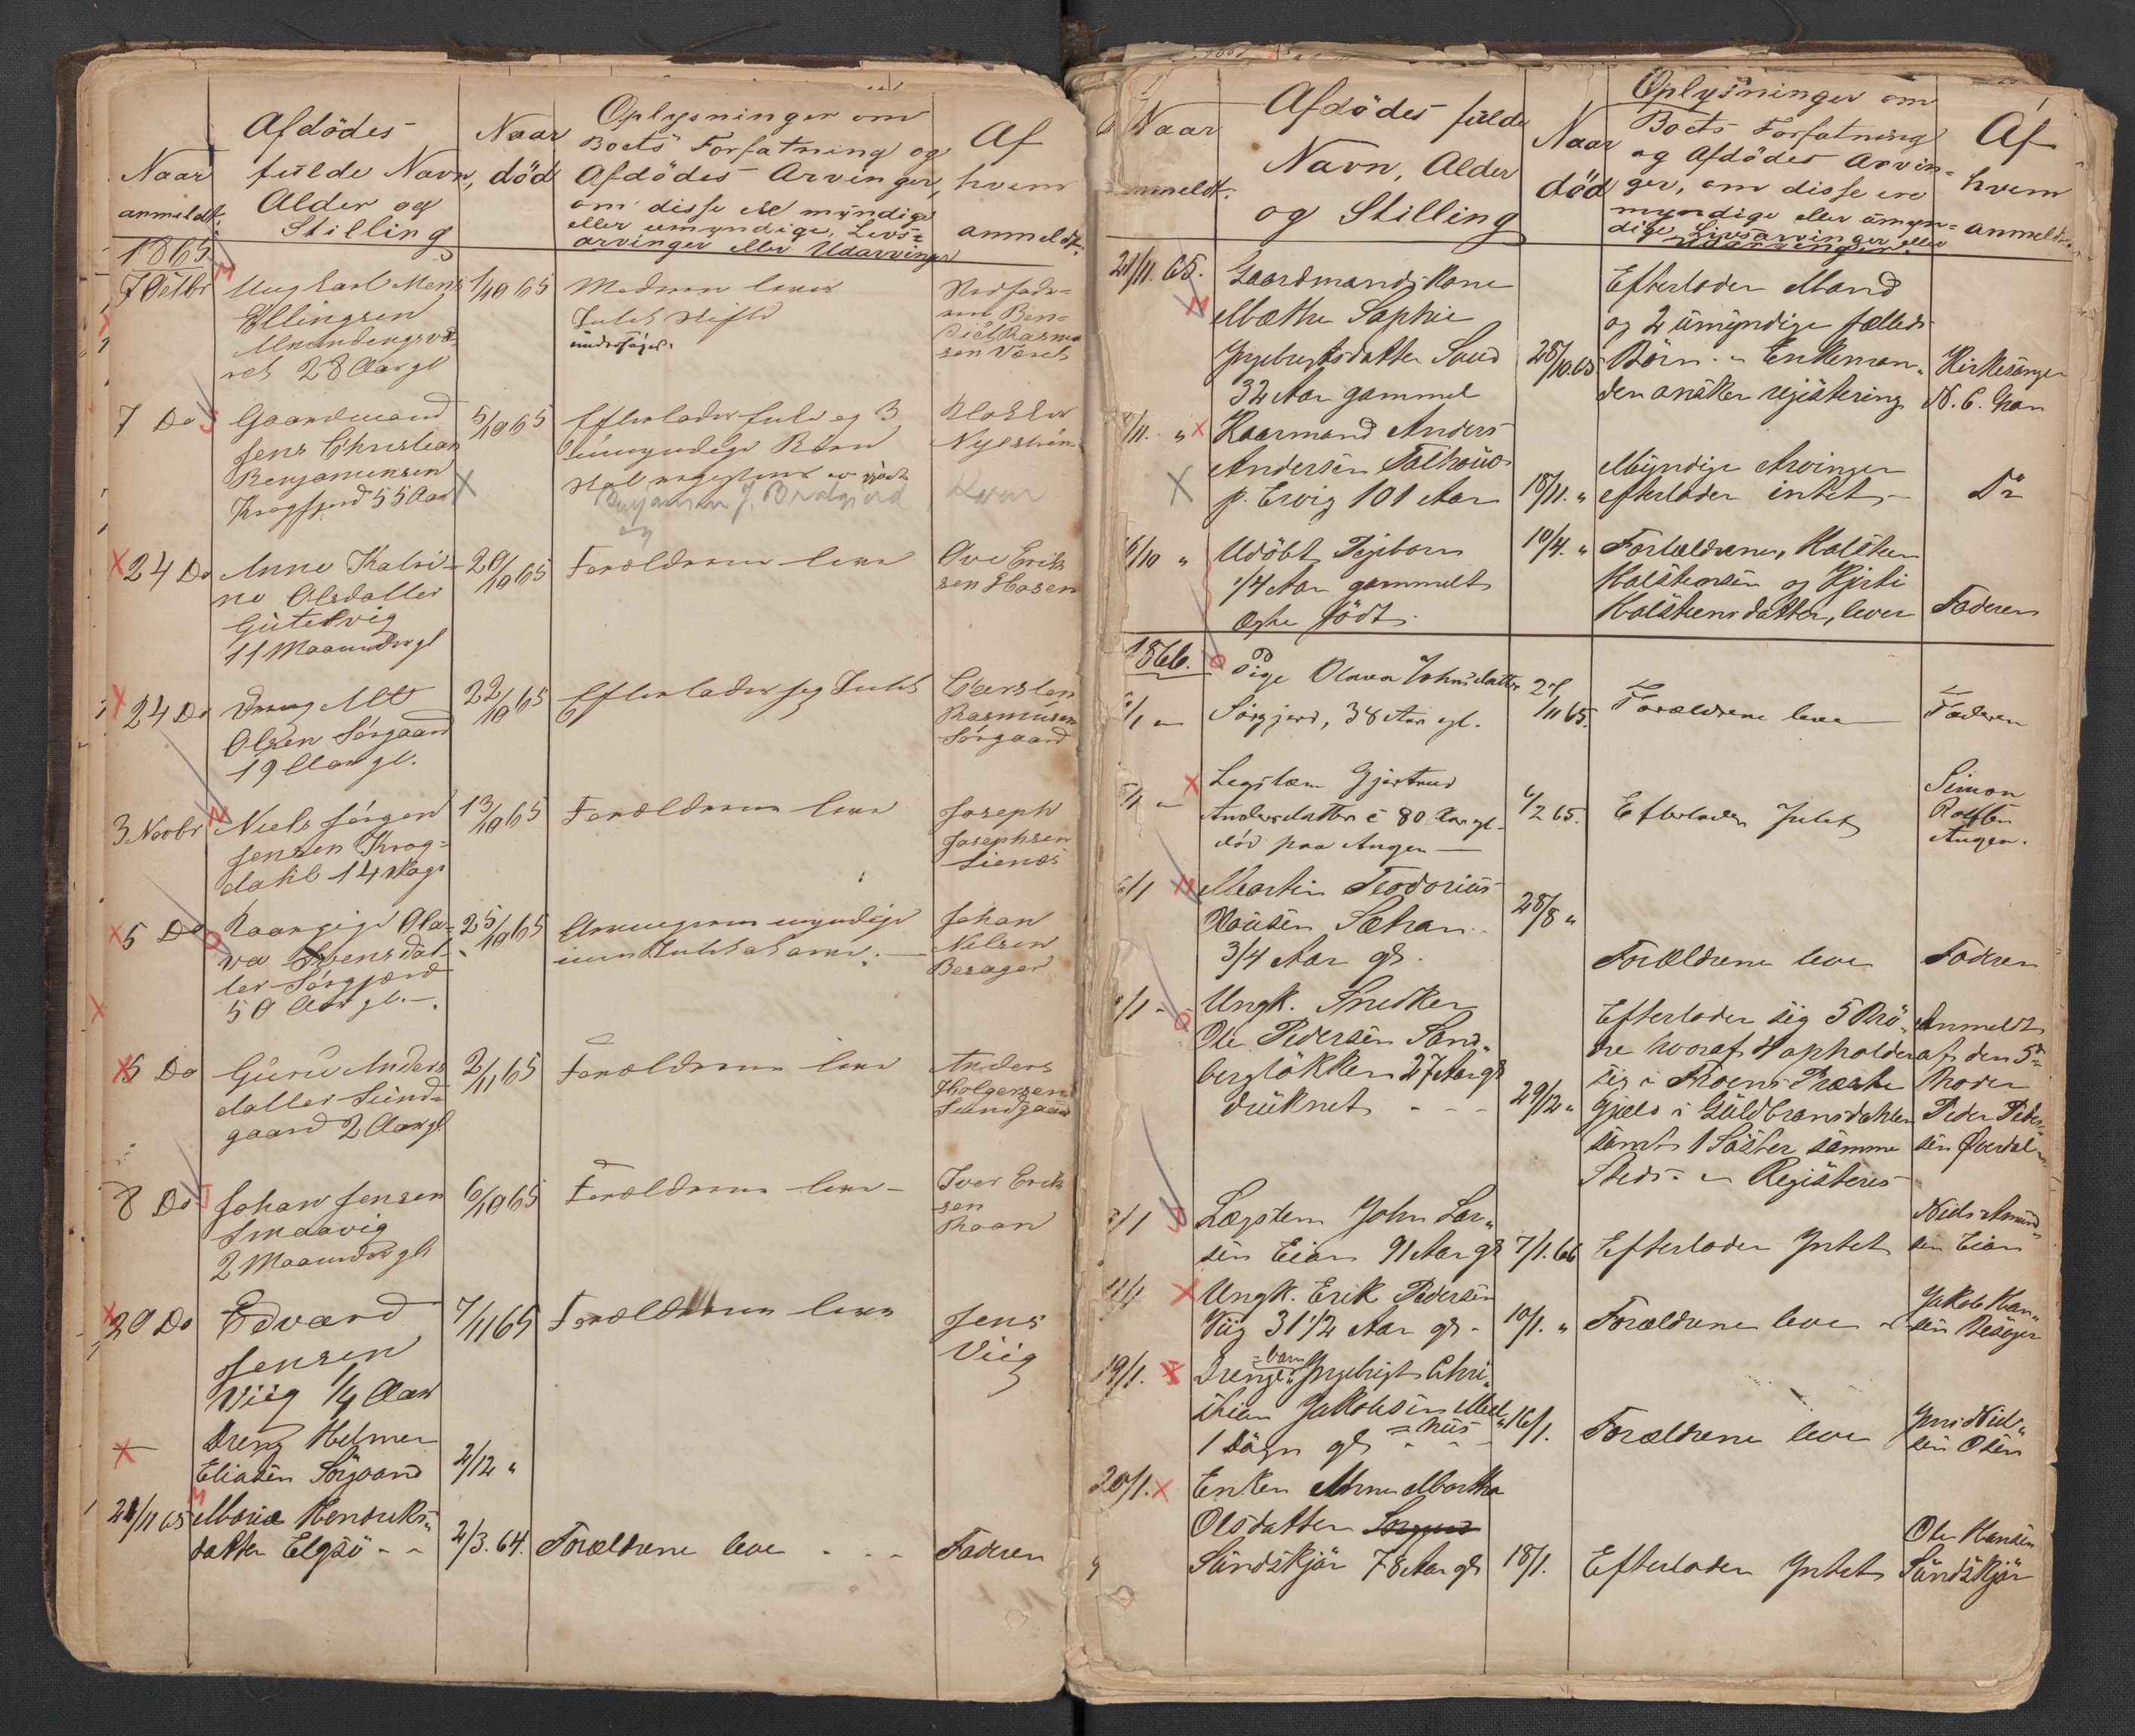 Naar
anmeldt.
Afdödes
fulde Navn,
Alder og
Stilling
Naar
död
Oplysninger om
Boets Forfatning og
Afdödes Arvinger,
om disse ere myndige
eller umyndige, Livs=
arvinger eller Udarvinger
Af
hvem
anmeldt.
1865
7 Octbr
Ungkarl Mons
Ellingsen
28 Aar gl
1/10 65
Moderen lever
Intet Skifte
7 Do
Gaardmand
Jens Christian
Benjaminsen
Kragfjord 55 Aar
5/10 65
Efterlader sig 3
umyndige Børn
Klokker
Nyström
24 Do
Anne Katri-
ne Olsdatter
Gütelvig
11 Maaneder gl
20/10 65
Forældrene leve
Ove Erik
sen Hosen
24 Do
Dreng Ulll
Olsen Sörgaard
19 Aar gl.
22/10 65
Efterlader sig Intet
Chersten
Rasmusen
Sörgaard
3 Novbr
Niels Jörgen
Jensen Krog=
dahl 14 Dage
13/10 65
Forældrene leve
Joseph
Josephsen
Lienes
5 Do
Kaarpige Ola-
va Svensdat-
ter Sörgjerd
50 Aar gl. -.
25/10 65
Arvingerne myndige
Johan
Nelsen
Besager
5 Do
Guru Anders
datter Sund=
gaard 2 Aar gl
2/11 65
Forældrene leve
Anders
Holgersen
Sundgaard
8 Do
Johan Jensen
Smaavig
2 Maaneder gl
6/10 65
Forældrene leve -
Iver Erik
sen
Roan
20 Do
Edvard
Jensen
Viig 1/4 Aar
7/11 65
Forældrene leve
Jens
Viig
Dreng Helmer
Eliasen Sörgaard
2/12 "
21/11 65
Maria Hendriks=
datter Elgsö - -
2/3. 64.
Forældrene leve - - -
Faderen
Naar
anmeldt.
Afdödes fulde
Navn, Alder
og Stilling
Naar
död
Oplysninger om
Boets Forfatning
og Afdödes Arvin=
ger, om disse ere
myndige eller umyn=
dige Livsarvinger eller
Udarvinger.
Af
hvem
anmeldt.
21/11. 65.
Gaardmandskone
Mæthe Sophie
Ingebrigtsdatter Sund
32 Aar gammel
28/10. 65
Efterlader Mand
og 2 umyndige fælleds
Börn. - Enkeman=
den önsker registering
Kirkesanger
N. C. Gran
/11. "
Kaarmand Anders
Andersen Talhaug
p. Ervig 101 Aar
18/11. "
Myndige Arvinger
efterlader intet -
Do
16/10 "
Udöbt Pigebarn
1/4 Aar gammelt
Ægte födt.
10/4. "
Forældrene, Halsten
Halstensen og Kjirsti
Halstensdatter, lever
Faderen
1866.
/1 -
Pige Olava Johnsdatter
Sörgjerd, 38 Aar gl.
/11 65.
Forældrene leve
Faderen
/1 -
Legslem Gjertrud
Andersdatter c 80 Aar gl.
död paa Angen -
6/2 65.
Efterlader Intet
Simon
Angen.
/1
Martin Teodorius
Sæhan.
3/4 Aar gl.
28/8 "
Forældrene leve
Faderen
/1 -
Ungk. Snedker
Ole Pedersen Sand=
berglökken 27 Aar gl
druknet - - -
29/12 "
Efterlader sig 5 Brö=
dre hvoraf 4 opholder
sig i Froens Præste
gjeld i Guldbransdahlen
samt 1 Söster samme
Steds. - Registeres
Anmeldt
af den 5te
Broder
Peder Peder=
sen Överdal
/1
Lægslem John Lar=
sen Eian 91 Aar gl
7/1. 66
Efterlader Intet
Niels Amund=
sen Eian
11/1
Ungk. Erik Pedersen
Viig 31 1/2 Aar gl -
10/1. "
Forældrene leve -
Jakob Han=
sen Besager
19/1.
Drenge=barn Ingebrigt Chri=
stian Jakobsen Mel=
=hus
1 Dögn gl - - -
16/1.
Forældrene leve
Jens Niel=
sen Osen
20/1.
Enken Anne Martha
Olsdatter
Sundskjær 78 Aar gl
18/1.
Efterlader Intet
Ole Hansen
Sundskjær